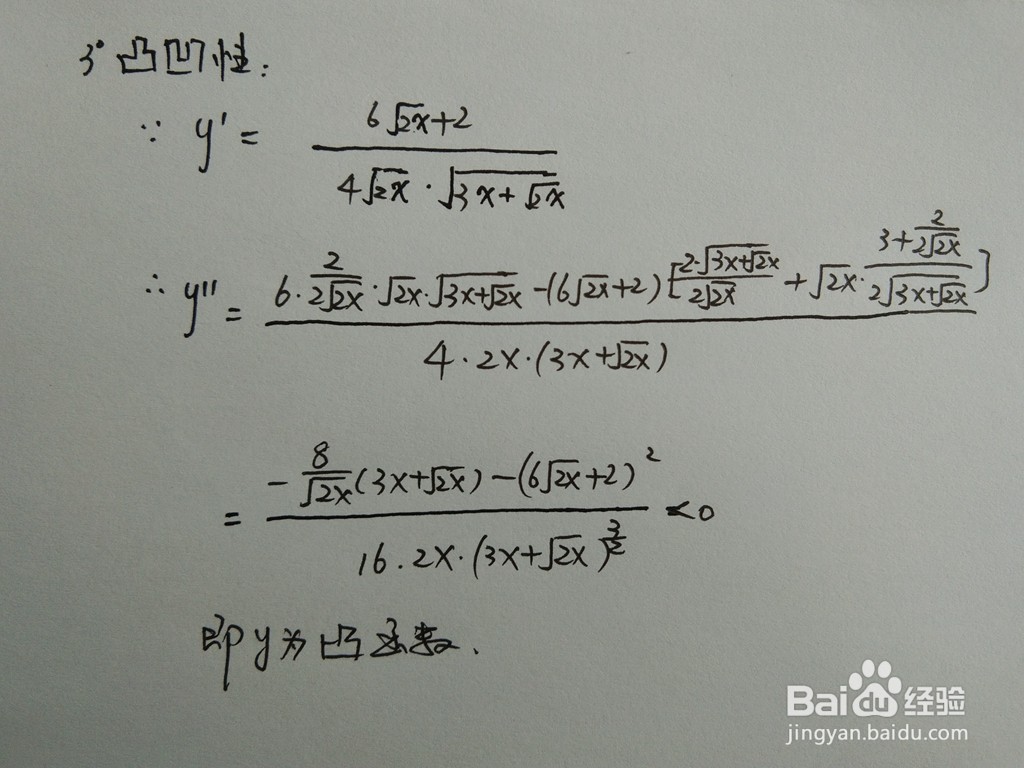 3° 凸凹性:
∵ y' = (6√2x+2) / (4√2x · √(3x+√2x))
∴ y'' = (6·2/(2√2x)·√2x·√(3x+√2x) - (6√2x+2)[2·√(3x+√2x)/(2√2x) + √2x·(3+2/(2√2x))/(2√(3x+√2x))]) / (4·2x·(3x+√2x))
= (-8/√2x(3x+√2x) - (6√2x+2)²) / (16.2x·(3x+√2x)^(3/2)) <0
即y为凸函数.
Baidu经验
jingyan.baidu.com